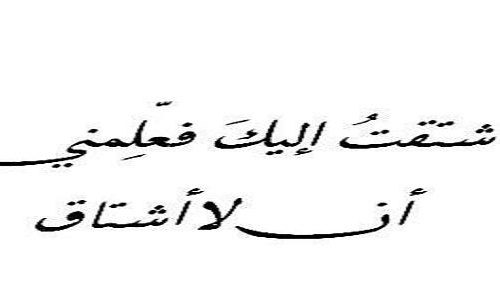 شتقتُ إليكَ فعلِّمني
أن لا أشتاق